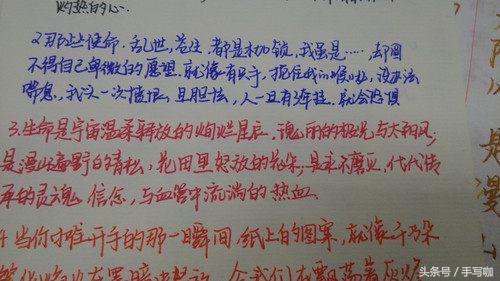 灼热的心.
2.那些使命.乱世,苍生,都是枷锁,我虽是……,却圆
不得自己卑微的愿望.就像有只手,扼住我的喉咙,没办法
喘息,我头一次惶恐,且胆怯,人一旦有牵挂.就会恐惧
3.生命是宇宙温柔释放的绚烂星辰.瑰丽的极光与太阳风;
是漫山遍野的青松,花田里怒放的花朵;是永不磨灭,代代传
承的灵魂.信念,与血管中流淌的热血.
4.当你才推开手的那一瞬间.纸上的图案,就像千万朵
头条号/手写咖